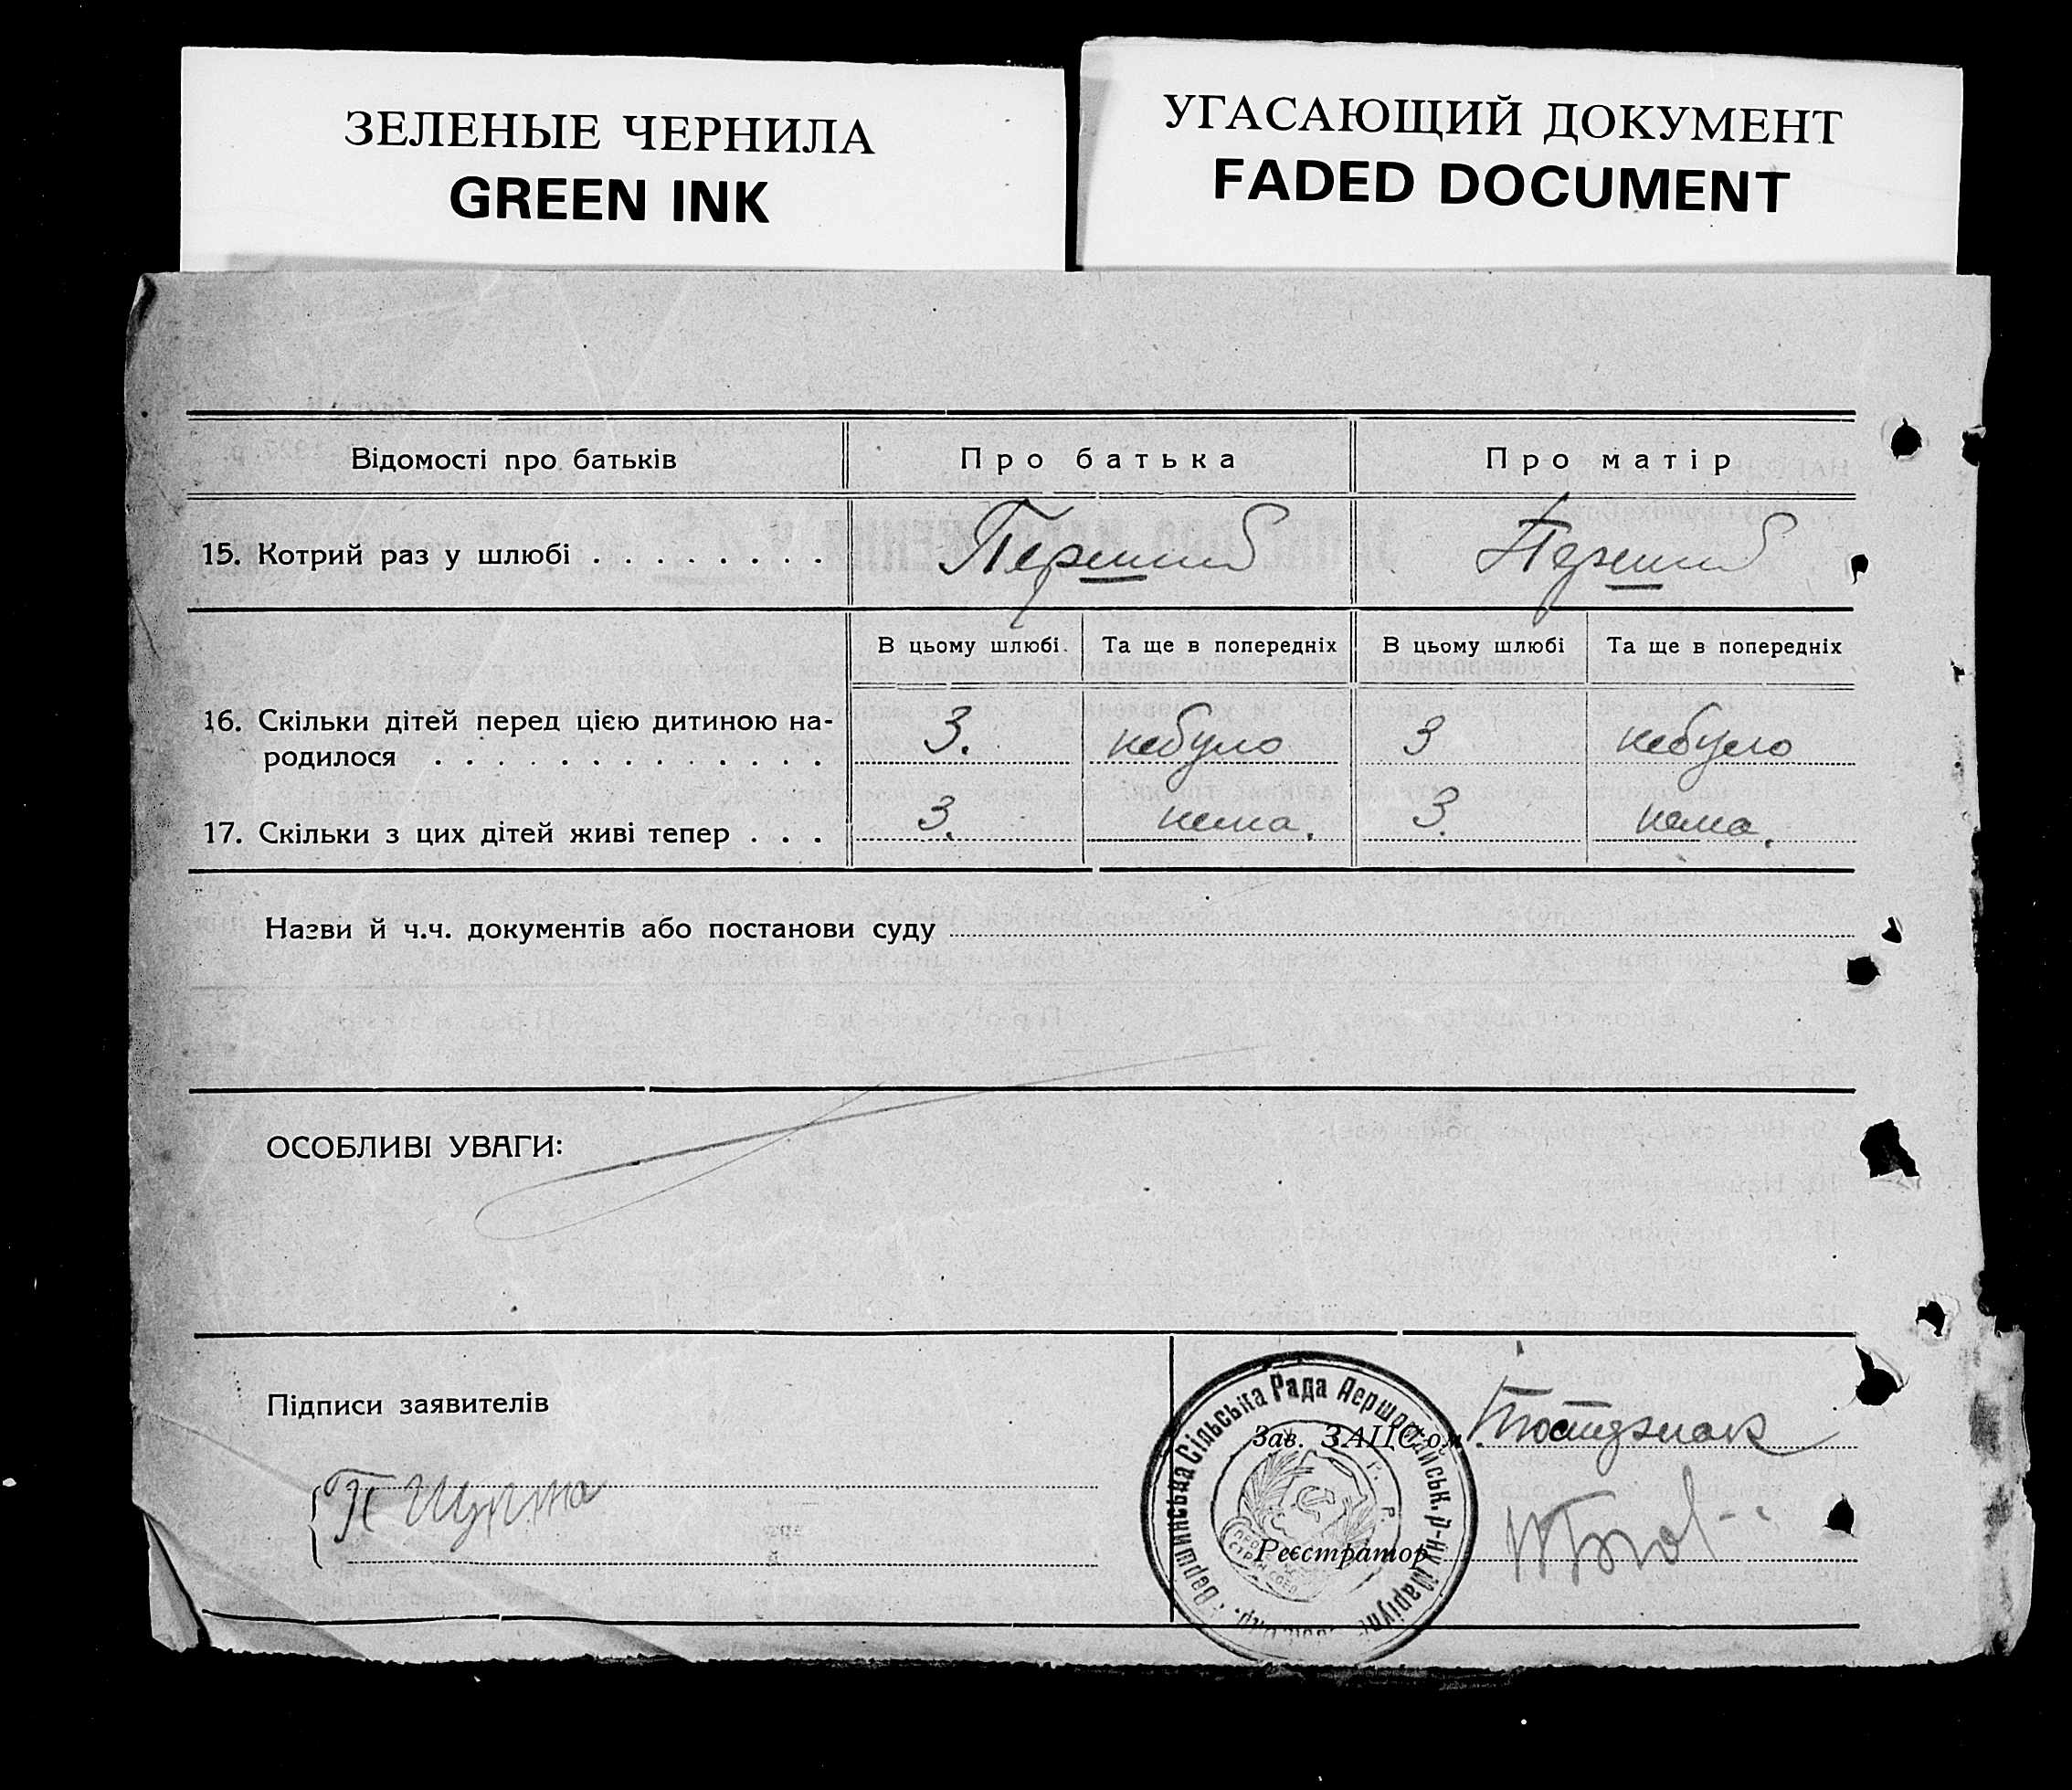 ЗЕЛЕНЫЕ ЧЕРНИЛА
GREEN INK
УГАСАЮЩИЙ ДОКУМЕНТ
FADED DOCUMENT
Відомості про батьків Про батька Про матір
15. Котрий раз у шлюбі . . . . . . . . Перший Перший
В цьому шлюбі. Та ще в попередніх В цьому шлюбі Та ще в попередніх
16. Скільки дітей перед цією дитиною на-
родилося . . . . . . . . . . . . . . 3. небуло 3 небуло
17. Скільки з цих дітей живі тепер . . . 3. нема. 3. нема.
Назви й ч.ч. документів або постанови суду
ОСОБЛИВІ УВАГИ:
Підписи заявителів
Зав. ЗАЦС'ом
Реєстратор
Вершинська Сільська Рада Першотравнськ. Р-ну Маріуп